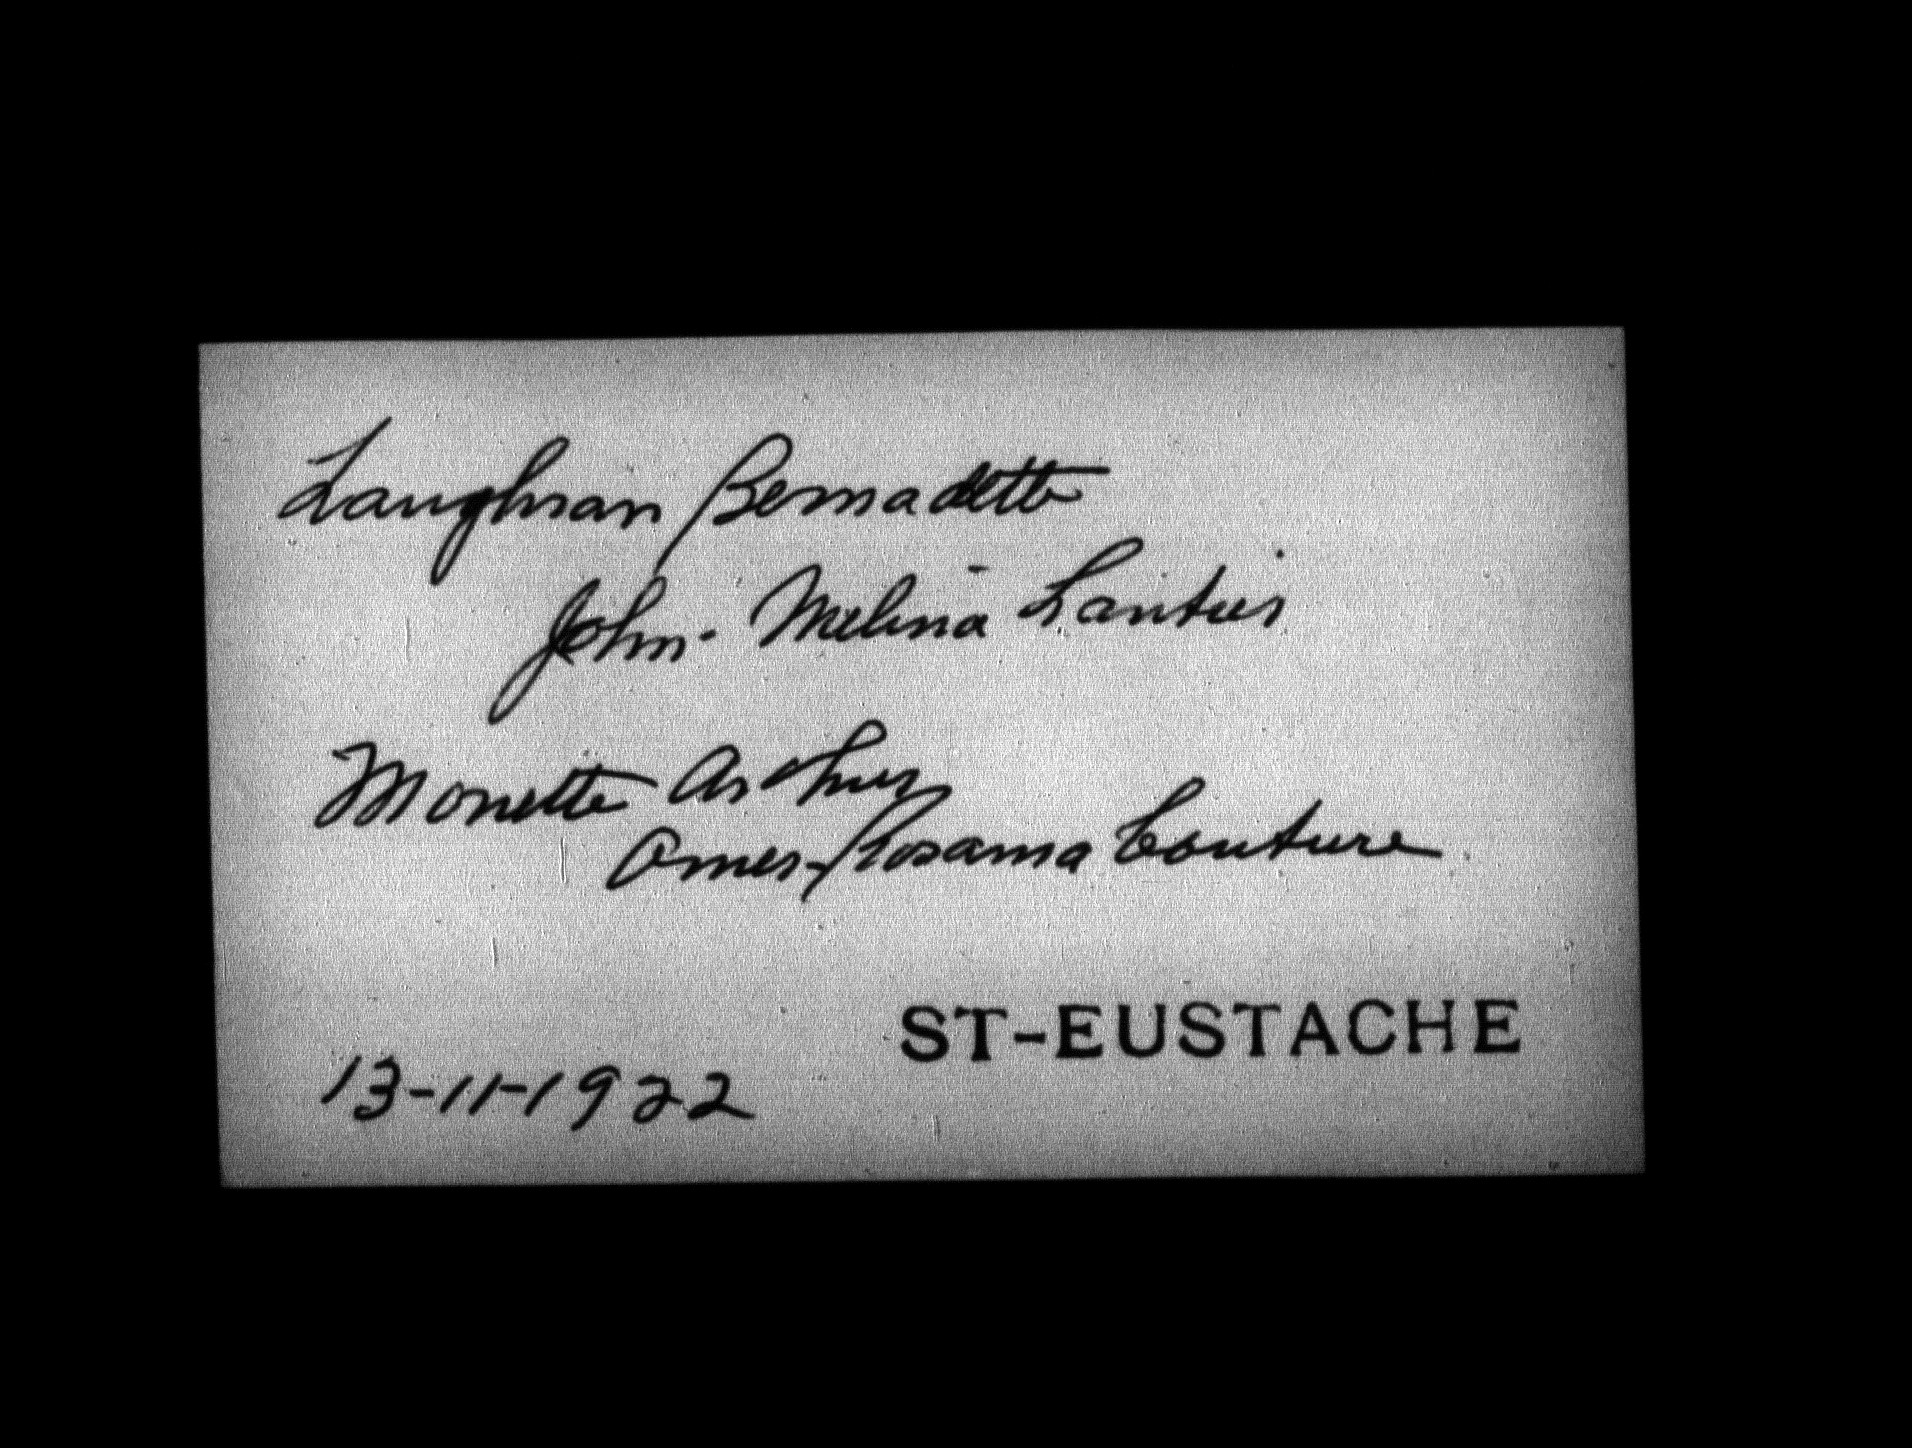 Laughran Bernadette
John - Melina Lantier
Monette Arthur
Omer - Rosanna Couture
ST-EUSTACHE
13-11-1922